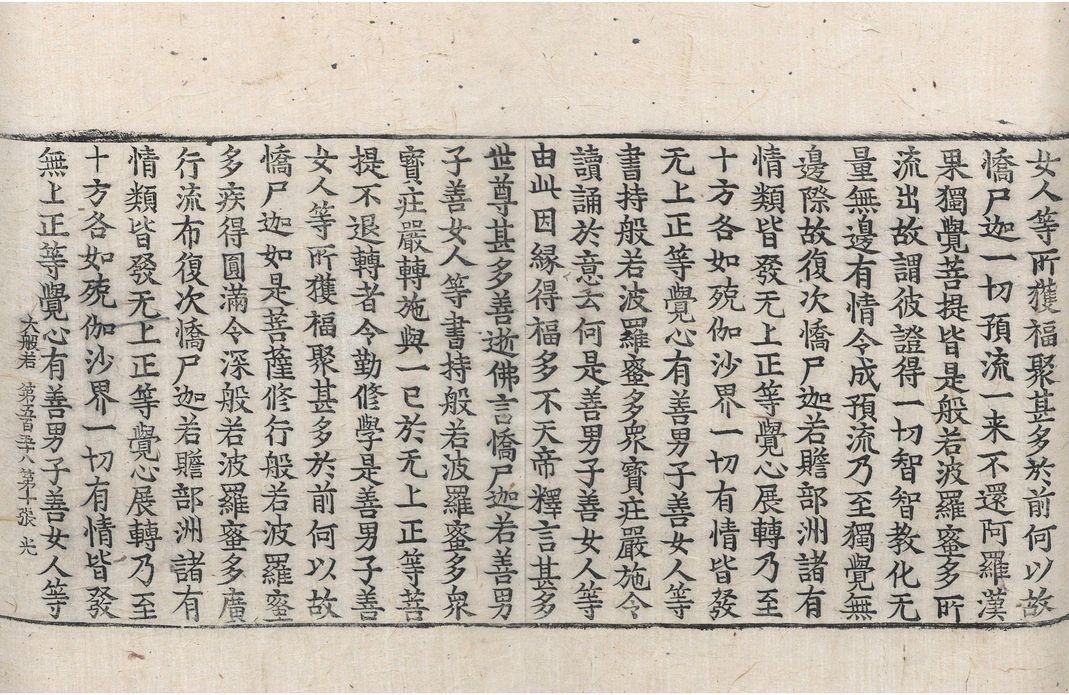 女人等所獲福聚甚多於前何以故
憍尸迦一切預流一来不還阿羅漢
果獨覺菩提皆是般若波羅蜜多所
流出故謂彼證得一切智智教化无
量無邊有情令成預流乃至獨覺無
邊際故復次憍尸迦若贍部洲諸有
情類皆發无上正等覺心展轉乃至
十方各如殑伽沙界一切有情皆發
无上正等覺心有善男子善女人等
書持般若波羅蜜多衆寶莊嚴施令
讀誦於意云何是善男子善女人等
由此因縁得福多不天帝釋言甚多
世尊甚多善逝佛言憍尸迦若善男
子善女人等書持般若波羅蜜多衆
寳莊嚴轉施與一已於无上正等菩
提不退轉者令勤修學是善男子善
女人等所獲福聚甚多於前何以故
憍尸迦如是菩薩修行般若波羅蜜
多疾得圓滿令深般若波羅蜜多廣
行流布復次憍尸迦若贍部洲諸有
情類皆發无上正等覺心展轉乃至
十方各如殑伽沙界一切有情皆發
無上正等覺心有善男子善女人等
大般若 第五百五十八 第十張 光